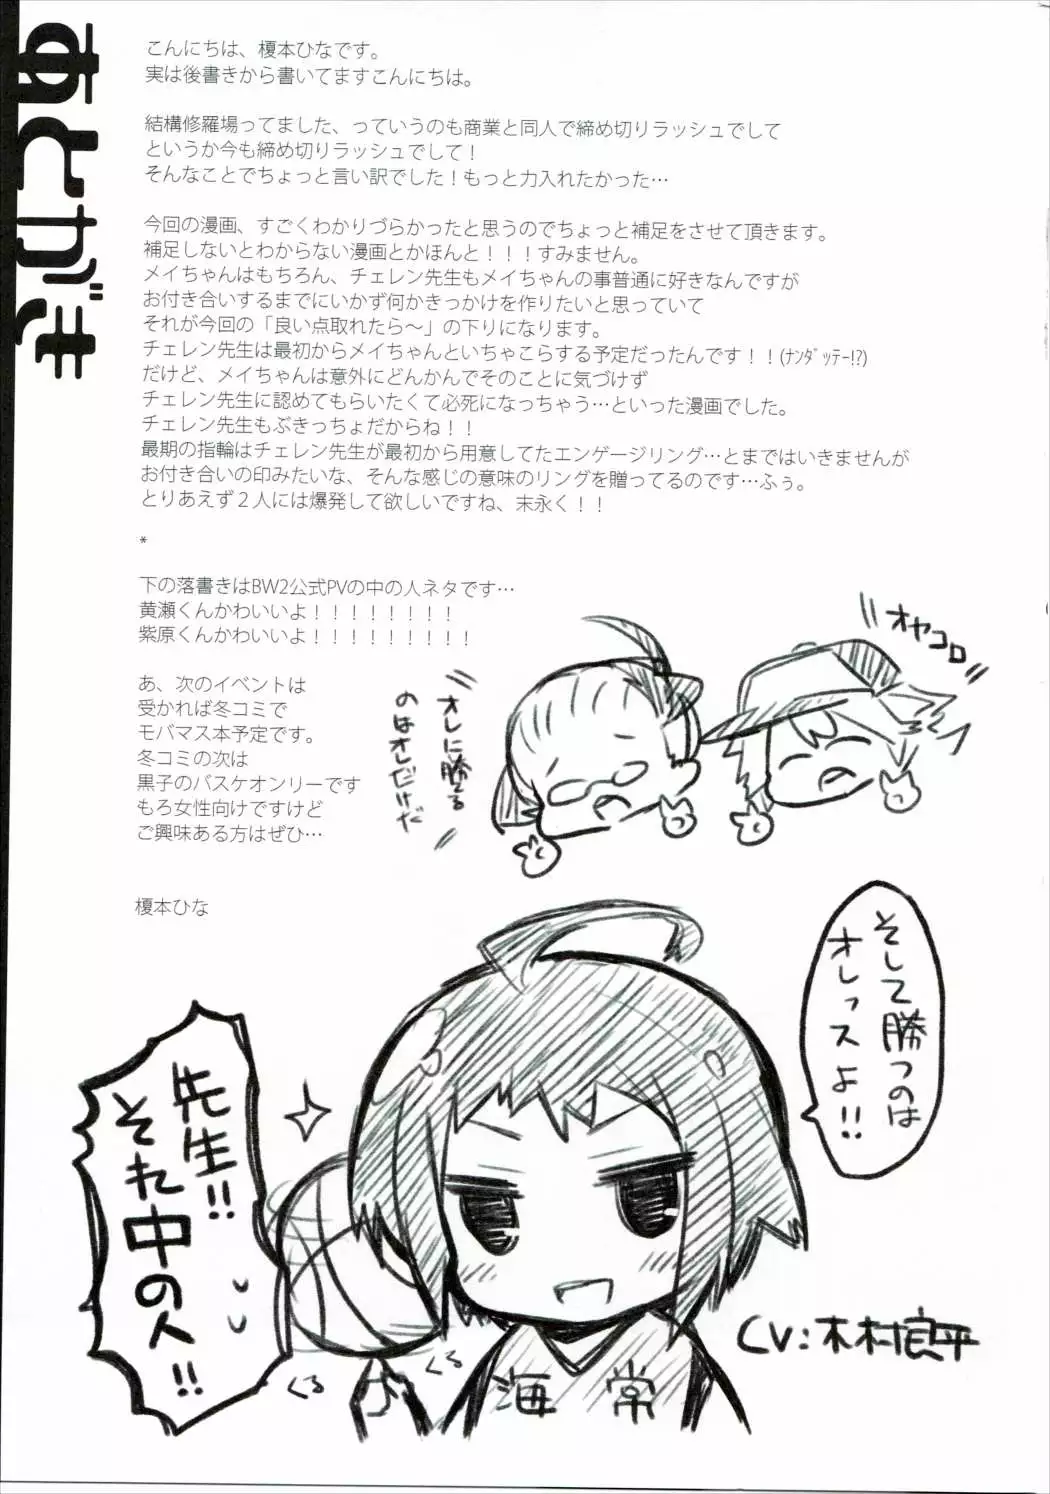 あとがき
こんにちは、榎本ひなです。
実は後書きから書いてますこんにちは。
結構修羅場ってました、っていうのも商業と同人で締め切りラッシュでして
というか今も締め切りラッシュでして！
そんなことでちょっと言い訳でした！もっと力入れたかった…
今回の漫画、すごくわかりづらかったと思うのでちょっと補足をさせて頂きます。
補足しないとわからない漫画とかほんと！！！すみません。
メイちゃんはもちろん、チェレン先生もメイちゃんの事普通に好きなんですが
お付き合いするまでにいかず何かきっかけを作りたいと思っていて
それが今回の「良い点取れたら～」の下りになります。
チェレン先生は最初からメイちゃんといちゃこらする予定だったんです！！(ﾅﾝﾀﾞｯﾃｰ!?)
だけど、メイちゃんは意外にどんかんでそのことに気づけず
チェレン先生に認めてもらいたくて必死になっちゃう…といった漫画でした。
チェレン先生もぶきっちょだからね！！
最期の指輪はチェレン先生が最初から用意してたエンゲージリング…とまではいきませんが
お付き合いの印みたいな、そんな感じの意味のリングを贈ってるのです…ふぅ。
とりあえず２人には爆発して欲しいですね、末永く！！
*
下の落書きはBW2公式PVの中の人ネタです…
黄瀬くんかわいいよ！！！！！！！！
紫原くんかわいいよ！！！！！！！！！
あ、次のイベントは
受かれば冬コミで
モバマス本予定です。
冬コミの次は
黒子のバスケオンリーです
もろ女性向けですけど
ご興味ある方はぜひ…
榎本ひな
オヤコロ
オレに勝てる
のはオレだけだ
そして勝つのは
オレっスよ!!
先生!!
それ中の人!!
くる
くる
海常
CV:木村良平